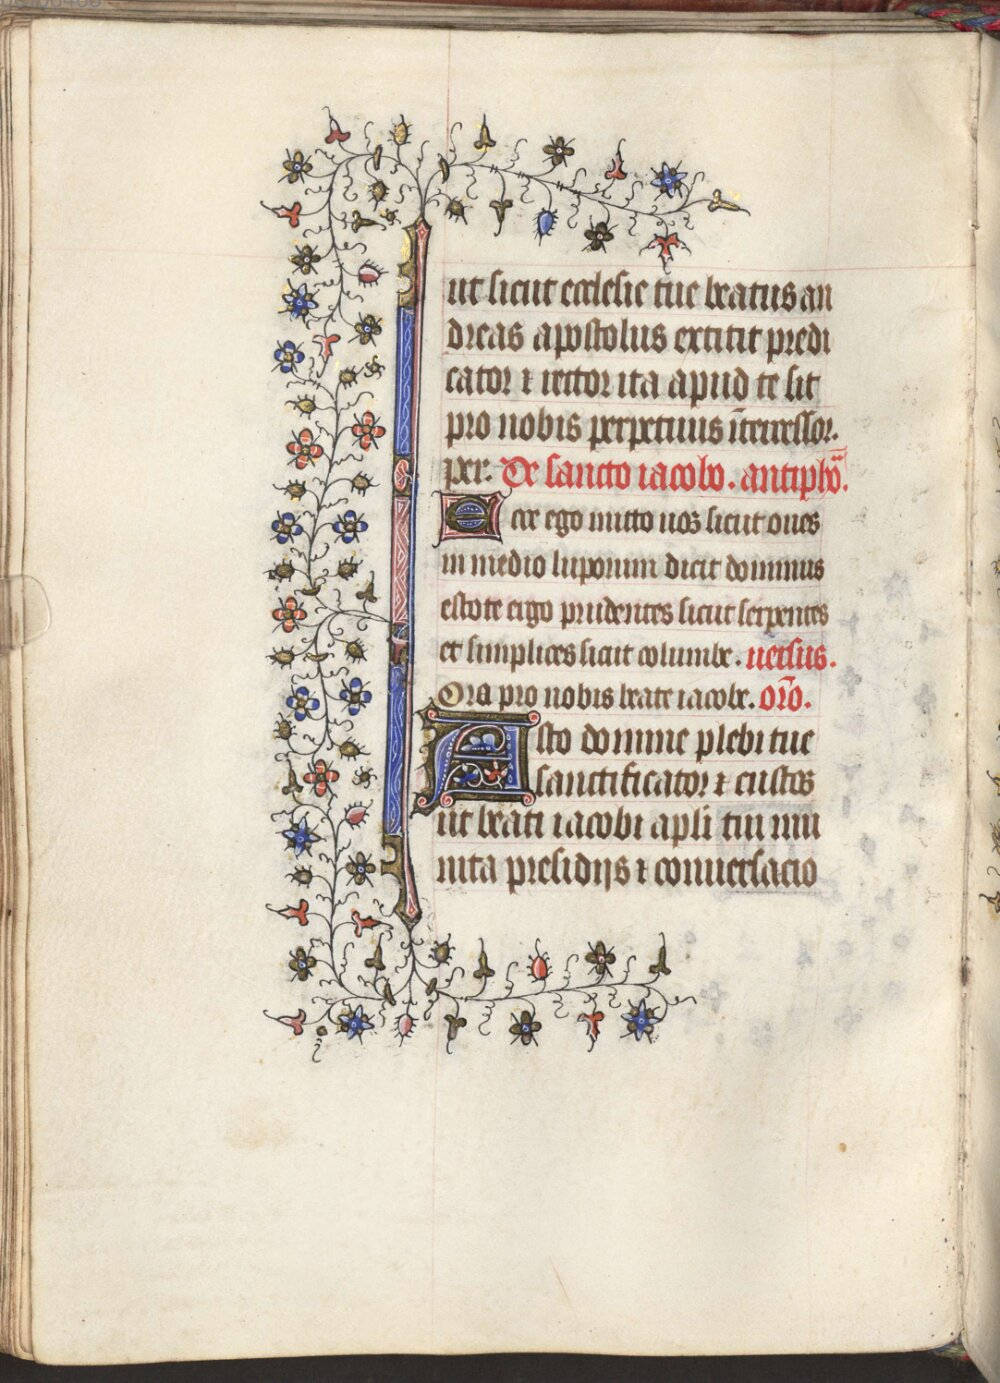 ut sicut ecclesie tue beatus an
dreas apostolus extitit predi
cator ⁊ rector ita apud te sit
pro nobis perpetuus īt̄ercessor.
per. De sancto iacobo. antiphō.
Ecce ego mitto uos sicut oues
in medio luporum dicit dominus
estote ergo prudentes sicut serpentes
et simplices sicut columbe. uersus.
Ora pro nobis beate iacobe. orō.
Asto domine plebi tue
sanctificator ⁊ custos
ut beati iacobi apl̄i tui mu
nita presidijs ⁊ conuersacio